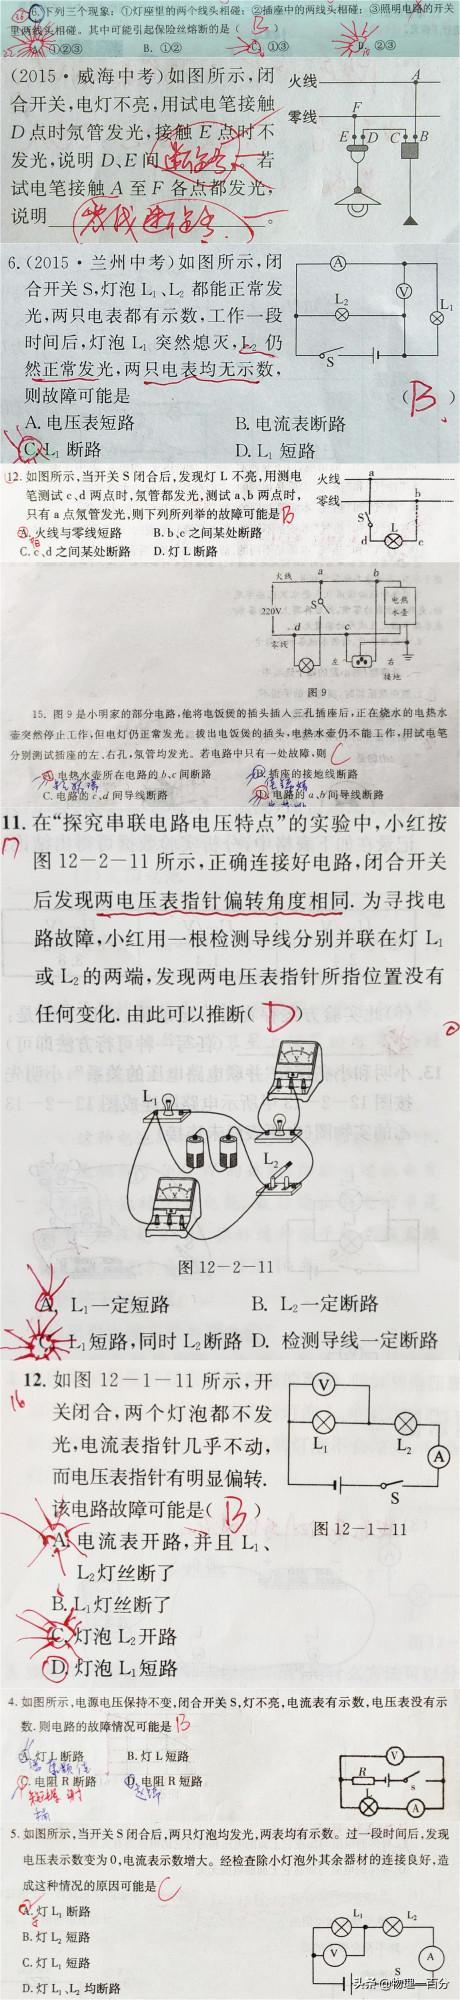 6.下列三个现象：①灯座里的两个线头相碰；②插座中的两线头相碰；③照明电路的开关
里两线头相碰。其中可能引起保险丝熔断的是（ B ）
A. ①②③ B. ①② C. ①③ D. ②③
(2015·威海中考)如图所示,闭
合开关,电灯不亮,用试电笔接触
D点时氖管发光,接触E点时不
发光,说明D、E间 断路 若
试电笔接触A至F各点都发光,
说明 零线断路 。
火线 A
零线 F
E D C B
6.(2015·兰州中考)如图所示,闭
合开关S,灯泡L₁、L₂都能正常发
光,两只电表都有示数,工作一段
时间后,灯泡L₁突然熄灭,L₂仍
然正常发光,两只电表均无示数,
则故障可能是 ( B )
A. 电压表短路 B. 电流表断路
C. L₁断路 D. L₁短路
A V L₂ L₁ S
12. 如图所示,当开关S闭合后,发现灯L不亮,用测电
笔测试c、d两点时,氖管都发光,测试a、b两点时,
只有a点氖管发光,则下列所列举的故障可能是 B
A. 火线与零线短路 B. b、c之间某处断路
C. c、d之间某处断路 D. 灯L断路
火线 a
零线 b
S L
d c
火线 a b
220V S 电热水壶
零线 d c
左 右
接地
图9
15. 图9是小明家的部分电路,他将电饭煲的插头插入三孔插座后,正在烧水的电热水
壶突然停止工作,但电灯仍正常发光。拔出电饭煲的插头,电热水壶仍不能工作,用试电笔
分别测试插座的左、右孔,氖管均发光。若电路中只有一处故障,则 C
A. 电热水壶所在电路的b、c间断路 B. 插座的接地线断路
C. 电路的c、d间导线断路 D. 电路的a、b间导线断路
11. 在“探究串联电路电压特点”的实验中,小红按
图12-2-11所示,正确连接好电路,闭合开关
后发现两电压表指针偏转角度相同.为寻找电
路故障,小红用一根检测导线分别并联在灯L₁
或L₂的两端,发现两电压表指针所指位置没有
任何变化.由此可以推断( D )
L₁
L₂
图12-2-11
A. L₁一定短路 B. L₂一定断路
C. L₁短路,同时L₂断路 D. 检测导线一定断路
12. 如图12-1-11所示,开
16
关闭合,两个灯泡都不发
光,电流表指针几乎不动,
而电压表指针有明显偏转.
该电路故障可能是( B )
A. 电流表开路,并且L₁、
L₂灯丝断了
B. L₁灯丝断了
C. 灯泡L₂开路
D. 灯泡L₁短路
V L₁ L₂ A S
图12-1-11
4. 如图所示,电源电压保持不变,闭合开关S,灯不亮,电流表有示数,电压表没有示
数.则电路的故障情况可能是 B
A. 灯L断路 B. 灯L短路
C. 电阻R断路 D. 电阻R短路
V R S L A
5. 如图所示,当开关S闭合后,两只灯泡均发光,两表均有示数。过一段时间后,发现
电压表示数变为0,电流表示数增大。经检查除小灯泡外其余器材的连接良好,造
成这种情况的原因可能是 C
A. 灯L₁断路
B. 灯L₂短路
C. 灯L₁短路
D. 灯L₁、L₂均断路
L₁ L₂ V A S
头条@物理一百分